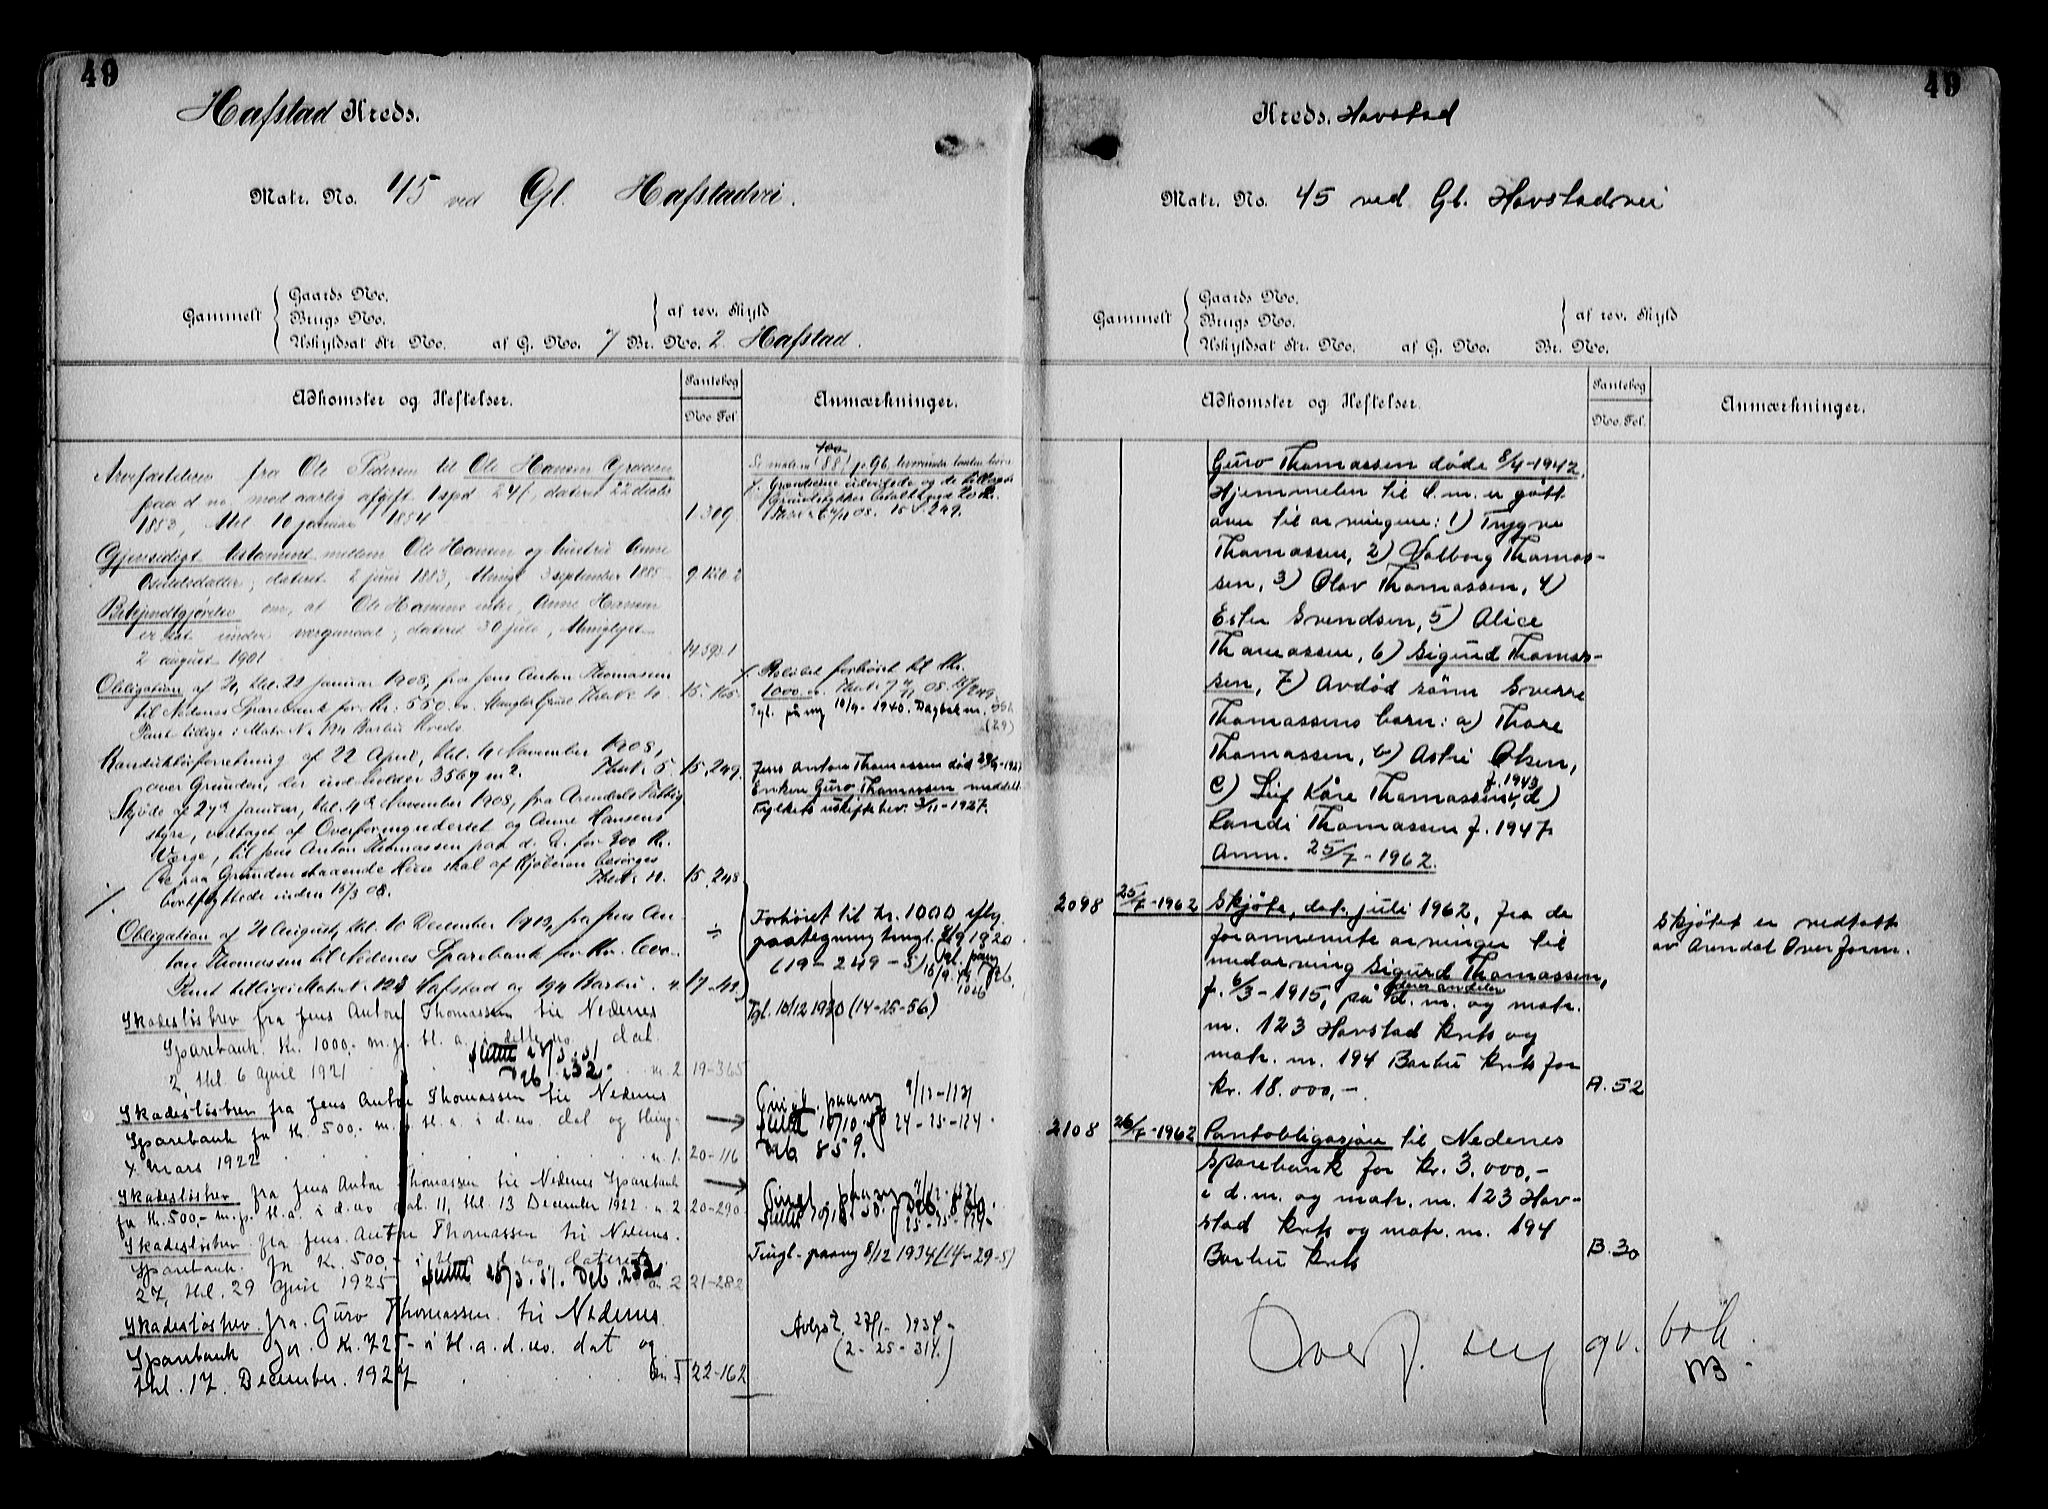 49
Hafstad Kreds.
Matr. No. 45 ved Gl. Hafstadvei.
Gammelt
Gaards No.
Brugs No.
Uskyldsat Str. No.
af rev. Skyld
af G. No. 7 Br. No. 2 Hafstad.
Adkomster og Heftelser.
Pantebog
No. Fol.
Anmærkninger.
Arvefæsteбrev fra Ole Pedersen til Ole Hansen
paa d no, med aarlig afgift 1 spd 24 f, dateret 22 decbr
1853, thl. 10 januar 1854
1.309.
Gjensidigt testament mellem Ole Hansen og hustru Anne
dateret 2 juni 1883, thingl 3 september 1885
9.150.2
Bekjendtgjørelse om, at Ole Hansens enke, Anne Hansen
er sat under værgemaal; dateret 30 juli, thinglyst
2 august 1901
14.593.1
Obligation af 21, thl. 22 januar 1908, fra Jens Anton Thomassen
til Nedenes Sparebank for Kr. 550.
Pant tillige i Matr. No. 194 Barbu Kreds.
15.165.
Beløbet forhøiet til Kr.
1000.
Tgl. påny 10/9-1940. Dagbok nr.
(29)
af 22 April, thl. 4 November 1908,
over Grunden, der indeholder 3569 m2.
15,249.
Skjøde af 27de Januar, thl. 4de November 1908, fra Arendals Fattig
styre, vedtaget af Overformynderiet og Anne Hansens
Værge, til Jens Anton Thomassen paa d. No. for 300 Kr.
De paa Grunden staaende Huse skal af Kjøberen besørges
bortflyttede inden 15/3 08.
15.248.
Jens Anton Thomassen død
Enken Guro Thomassen meddelt
Fylkets uskiftebev. 3/11-1927.
Obligation af 21 August, thl. 10 December 1913, fra Jens An-
ton Thomassen til Nedenes Sparebank for Kr. 600.
Pant tillige i Matr. N. 123 Hafstad og 194 Barbu.
17-42.
Forhøiet til kr. 1000 iflg.
paategning tingl. 8/9 1920
(19-249-5)
Skadesløsbrev fra Jens Anton Thomassen til Nedenes
Sparebank. Kr. 1000,- m.p. tl. a. i dette no. dat
2, thl. 6 April 1921
n. 2 19-365
Tgl. 10/12 1930 (14-25-56)
Skadesløsbrev fra Jens Anton Thomassen til Nedenes
Sparebank for Kr. 500,- m.p. tl. a. i d. no dat og thing-
4 Mars 1922
n. 1. 20-116
Dgb 859.
Skadesløsbrev fra Jens Anton Thomassen til Nedenes Sparebank
for Kr. 500,- m.p. tl. a. i d. no dat. 11, thl. 13 December 1922. n. 2
20-290
Skadesløsbrev fra Jens Anton Thomassen til Nedenes.
Sparebank. for Kr. 500,-
27, thl. 29 1925
n. 2 21-282
Tingl. paany 8/12 1934 (14-29-5)
Skadesløsbrev fra Guro Thomassen til Nedenes
Sparebank for Kr. 725- i tl. a. d. no. dat og
thl. 17. December. 1927
n. 5 22-162
Avlyst 27/1-1934-
(2-25-314.)
49
Kreds. Havstad
Matr. No. 45 ved Gl. Havstadvei
Gammelt
Gaards No.
Brugs No.
Uskyldsat Str. No.
af rev. Skyld
af G. No. Br. No.
Adkomster og Heftelser.
Pantebog
No. Fol.
Anmærkninger.
Guro Thomassen døde 8/4-1942.
Hjemmelen til d.m. er gått
over til arvingene: 1) Trygve
Thomassen, 2) Valborg Thomas-
sen, 3) Olav Thomassen, 4)
Ester Svendsen, 5) Alice
Thomassen, 6) Sigurd Thomas-
sen, 7) Avdød sønn Sverre
Thomassens barn: a) Thore
Thomassen, b) Astri Olsen,
c) Leif Kåre Thomassen, f. 1943, d)
Randi Thomassen f. 1947
Anm. 25/7-1962.
2098 25/7-1962 Skjøte, dat. juli 1962, fra de
forannevnte arvinger til
medarving Sigurd Thomassen,
f. 6/3-1915, på deres andeler d.m. og matr.
nr. 123 Havstad krets og
matr. nr. 194 Barbu krets for
kr. 18.000,-
A. 52
Skjøtet er vedtatt
av Arendal Overform.
2108 26/7-1962 Pantobligasjon til Nedenes
Sparebank for kr. 3.000,-
i d.m. og matr. nr. 123 Hav-
stad krets og matr. nr. 194
Barbu krets
B. 30